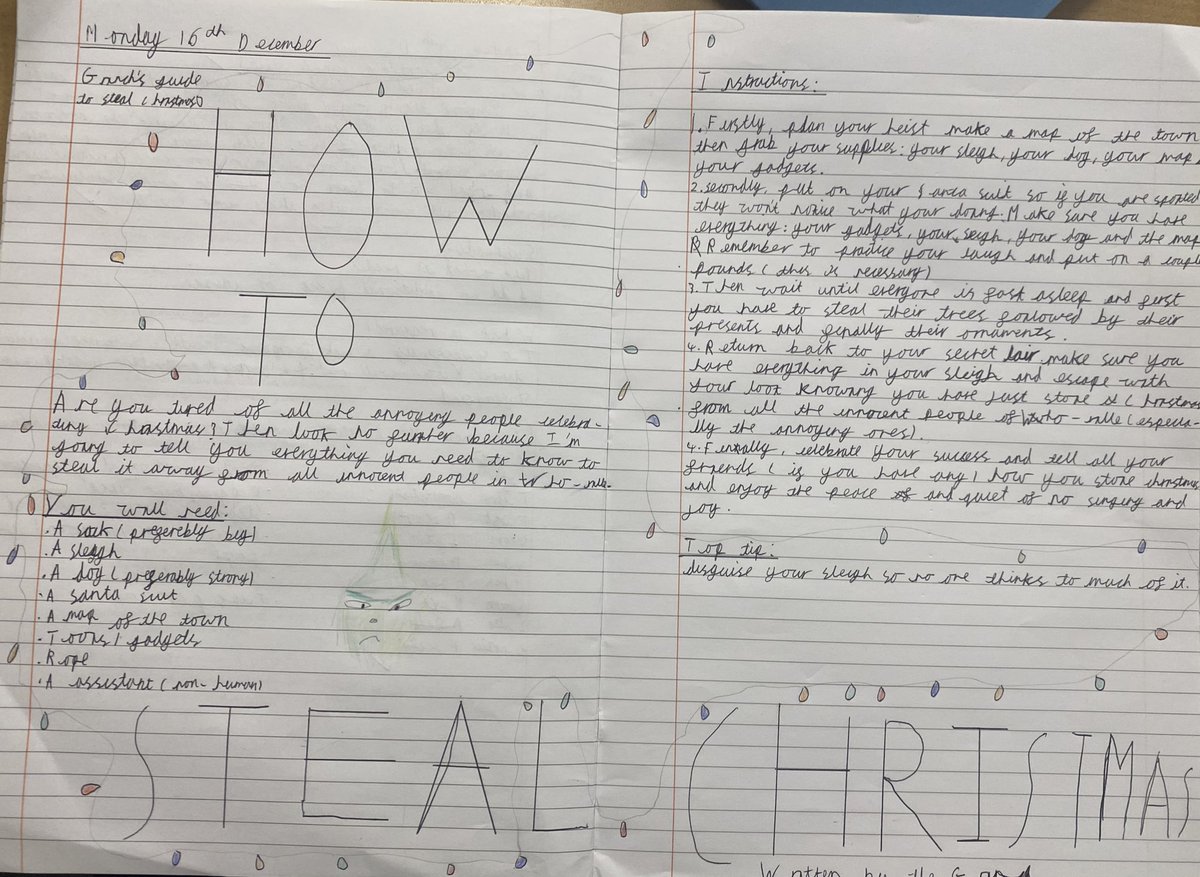 Monday 16th December
Grinch's guide
to steal Christmas
HOW
TO
Are you tired of all the annoying people celebra-
ting Christmas? Then look no further because I'm
going to tell you everything you need to know to
steal it away from all innocent people in who-ville.
You will need:
· A sack (preferebly big)
· A sleigh
· A dog (preferably strong)
· A santa suit
· A map of the town
· Tools / gadgets
· Rope
· A assistant (non-human)
STEAL
Instructions:
1. Firstly, plan your heist make a map of the town
then grab your supplies: your sleigh, your dog, your map
your gadgets.
2. secondly, put on your santa suit so if you are spotted
they won't notice what your doing. Make sure you have
everything: your gadgets, your sleigh, your dog and the map
Remember to practice your laugh and put on a couple
pounds (this is necessary)
3. Then wait until everyone is fast asleep and first
you have to steal their trees followed by their
presents and finally their ornaments.
4. Return back to your secret lair make sure you
have everything in your sleigh and escape with
your loot knowing you have just stole Christmas
from all the innocent people of who-ville (especia-
lly the annoying ones).
4. Finally, celebrate your success and tell all your
friends (if you have any) how you stole christmas
and enjoy the peace and quiet of no singing and
joy.
Top tip:
disguise your sleigh so no one thinks to much of it.
CHRISTMAS
Written by the